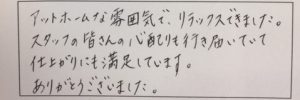 アットホームな雰囲気で、リラックスできました。
スタッフの皆さんの心配りも行き届いていて
仕上がりにも満足しています。
ありがとうございました。